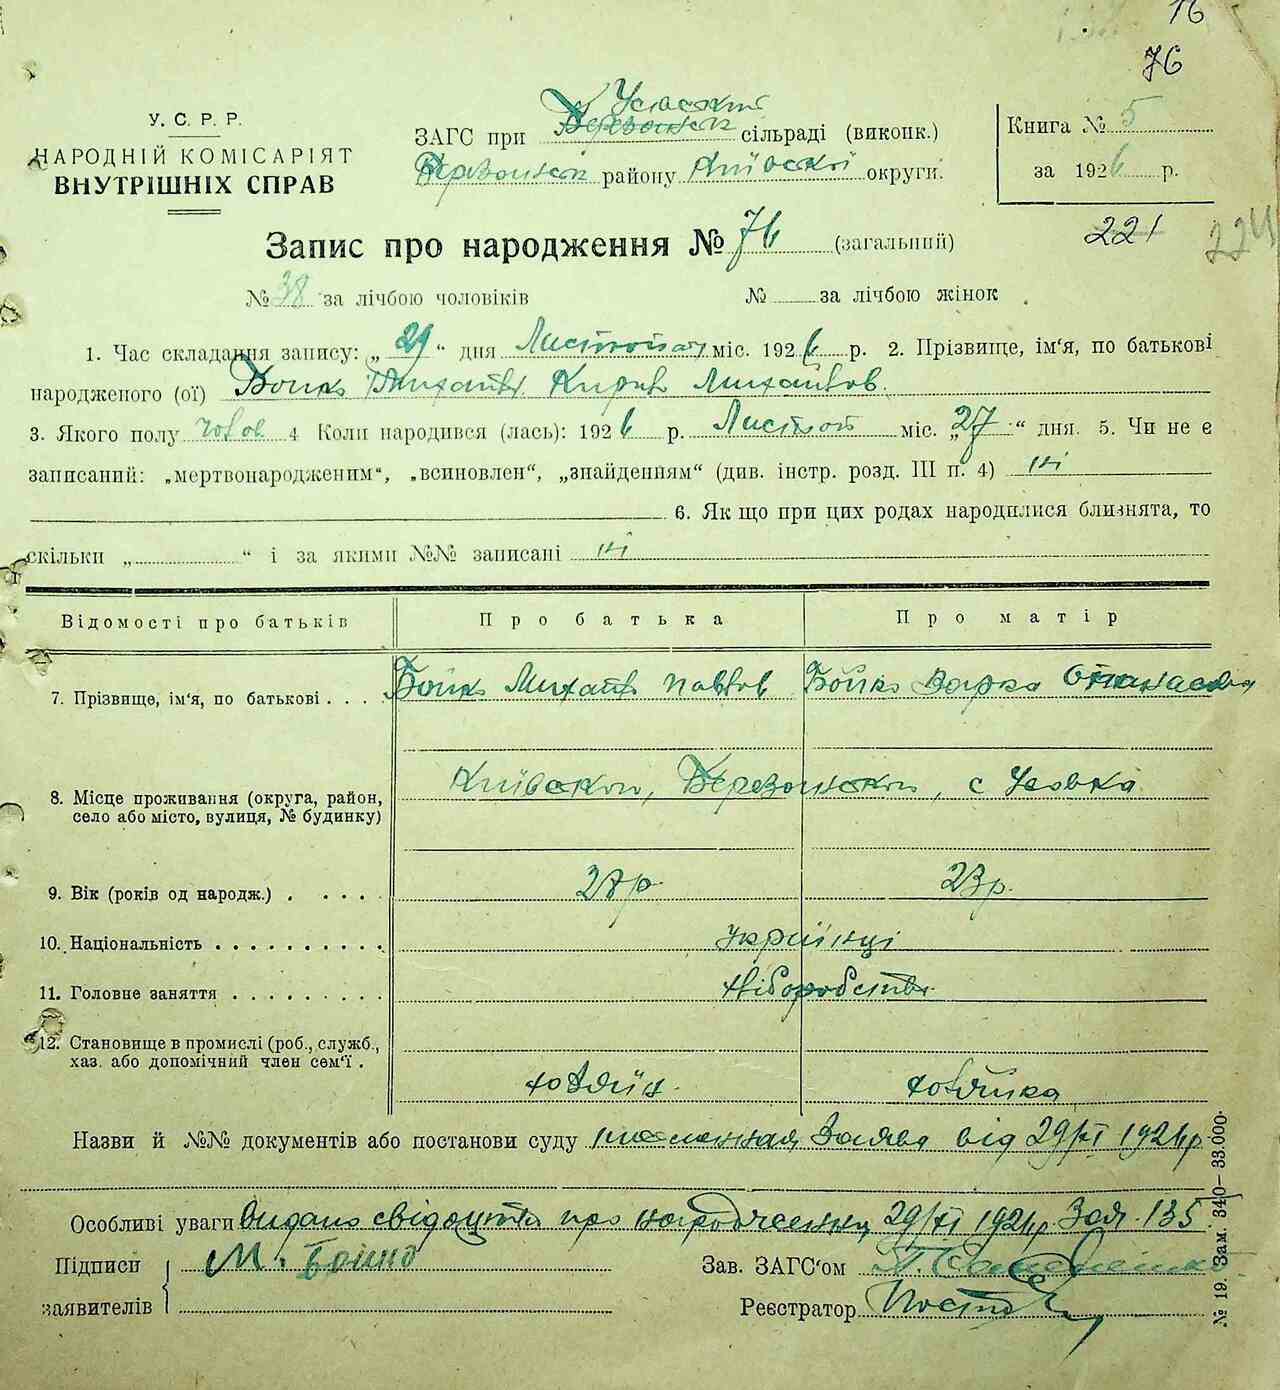 16
76
У. С. Р. Р.
НАРОДНІЙ КОМІСАРІЯТ
ВНУТРІШНІХ СПРАВ
ЗАГС при Усівский сільраді (виконк.)
Березанськ району Київской округи.
Книга № 5
за 1926 р.
Запис про народження № 76 (загальний)
221
224
№ 38 за лічбою чоловіків № за лічбою жінок
1. Час складання запису: „ 29 “ дня Листопад міс. 1926 р. 2. Прізвище, ім'я, по батькові
народженого (ої) Бойко Кирило Михайлов
3. Якого полу чолов 4 Коли народився (лась): 1926 р. Листопад міс. „ 27 “ дня. 5. Чи не є
записаний: „мертвонародженим“, „всиновлен“, „знайденням“ (див. інстр. розд. III п. 4) ні
6. Як що при цих родах народилися близнята, то
скільки „ “ і за якими №№ записані ні
Відомості про батьків Про батька Про матір
7. Прізвище, ім'я, по батькові . . . . Бойко Михайло Павлов Бойко Варка Опанасовна
8. Місце проживання (округа, район, село або місто, вулиця, № будинку) Київской, Березанской, с Усовка
9. Вік (років од народж.) . . . . . 27р 23р.
10. Національність . . . . . . . . . . Українці
11. Головне заняття . . . . . . . . . хліборобство
12. Становище в промислі (роб., служб., хаз. або допомічний член сем'ї . хозяїн. хозяйка
Назви й №№ документів або постанови суду Заява від 29/XI 1926р
Особливі уваги Видано свідоцтва про народження 29/XI 1926р. Зая. 135
Підписи М. Бойко Зав. ЗАГС'ом
заявителів Реєстратор
№ 19. Зам. 340–33.000.